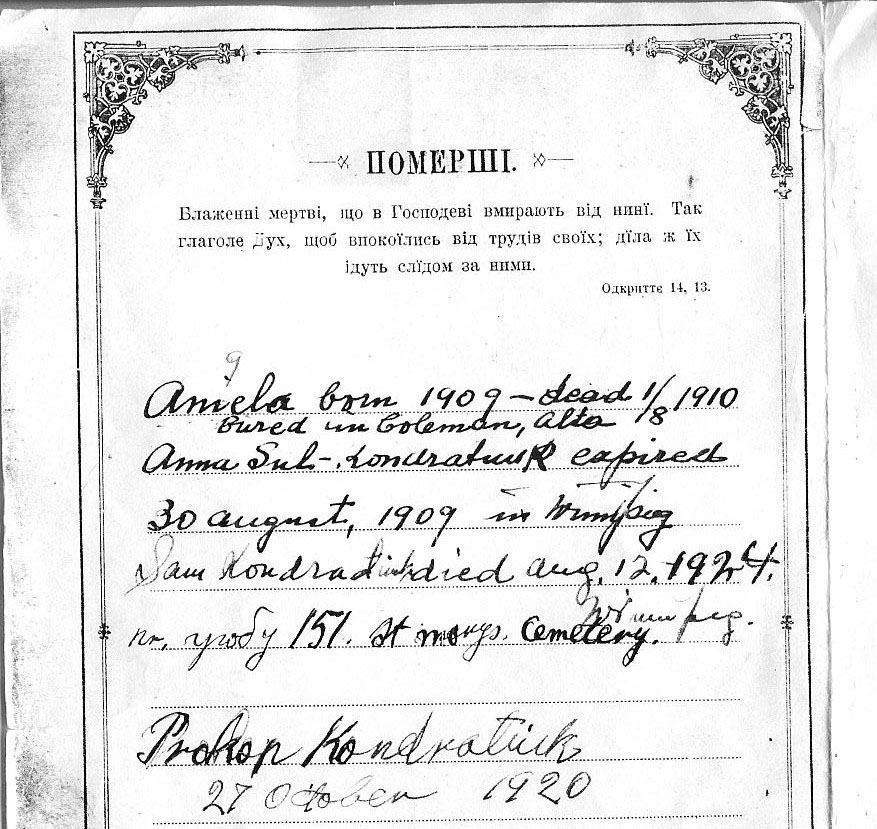 ПОМЕРШІ.
Блаженні мертві, що в Господеві вмирають від нині. Так
глаголе Дух, щоб впокоїлись від трудів своїх; дїла ж їх
ідуть слїдом за ними.
Одкриттє 14, 13.
9
Aniela born 1909 – dead 1/8 1910
Bured in Coleman, Alta
Anna Sul-Kondratiuk expired
30 august, 1909 in Winnipeg
Sam Kondratiuk died aug. 12, 1924.
Winnipeg.
nr. гробу 151. St marys. Cemetery.
Prokop Kondratiuk
27 October 1920